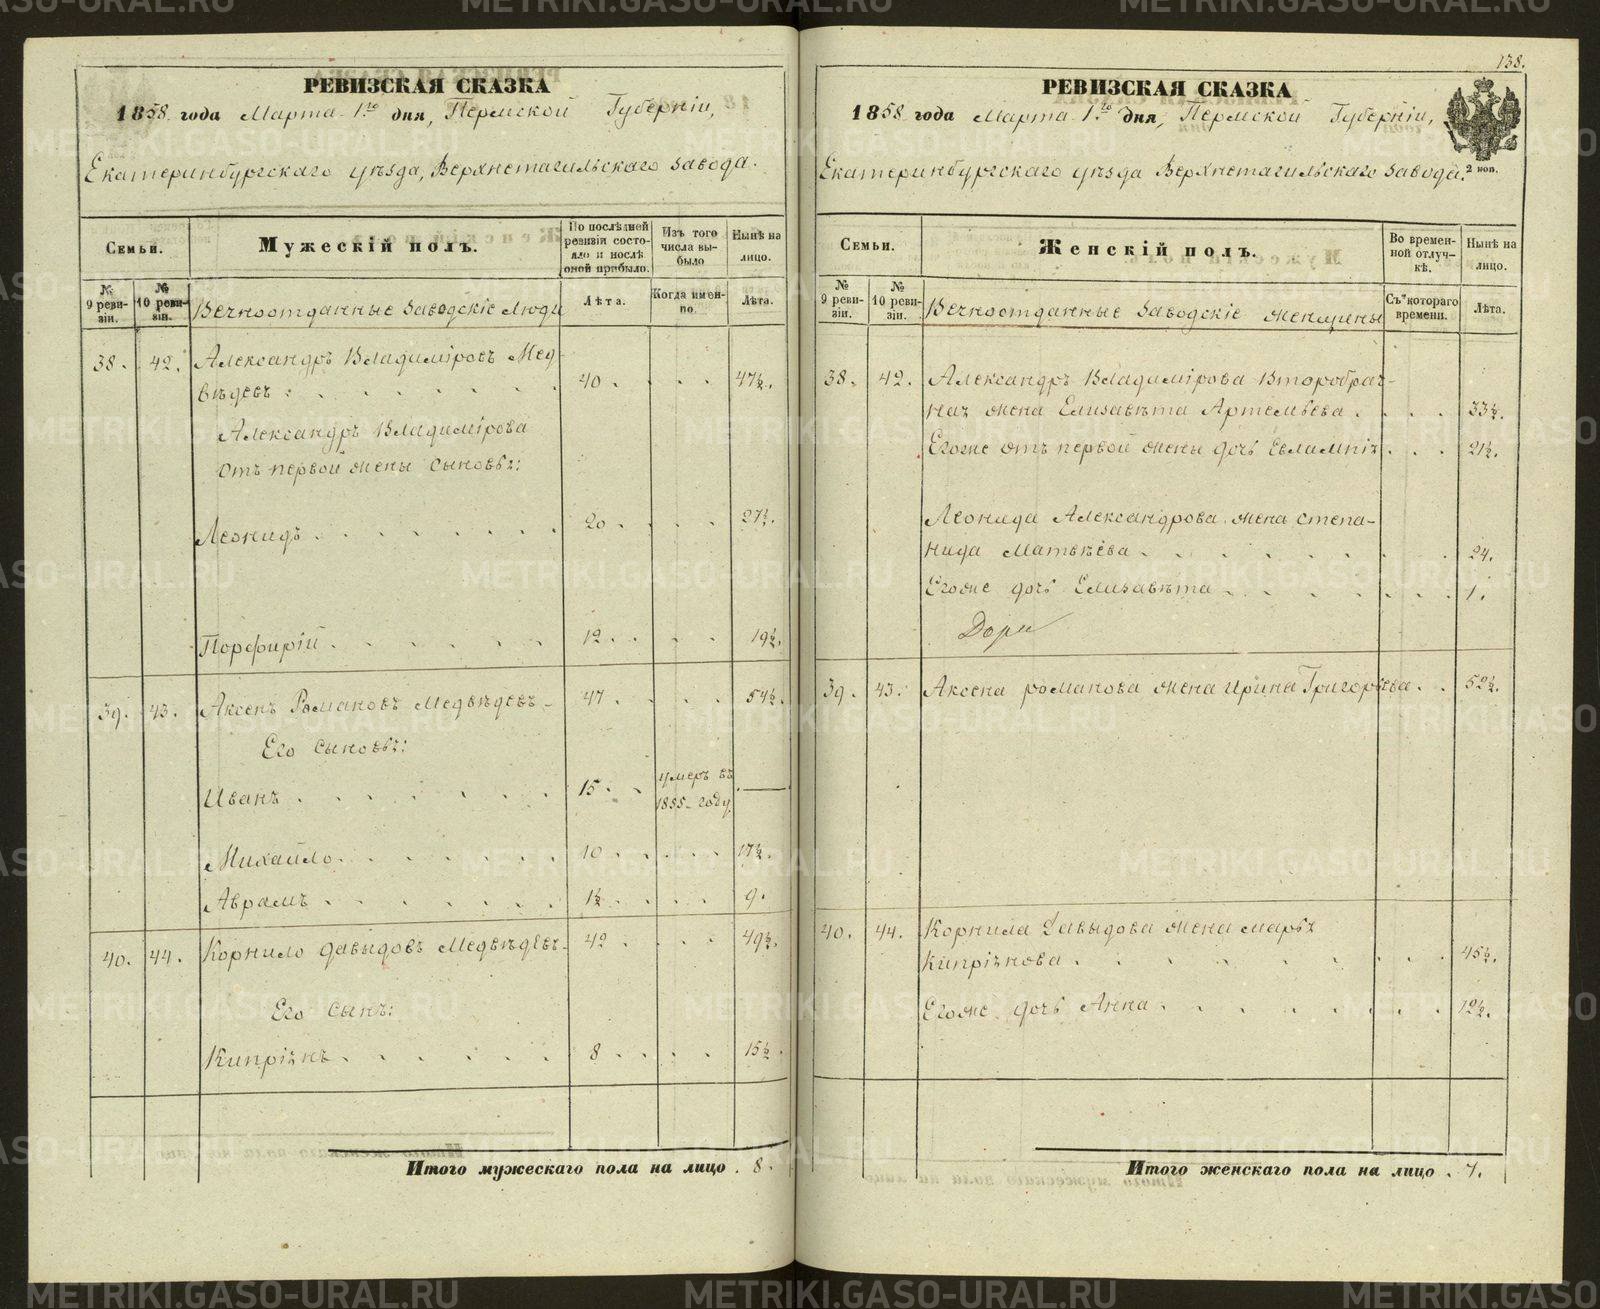 РЕВИЗСКАЯ СКАЗКА
1858 года Марта 1го дня, Пермской Губерніи,
Екатеринбургскаго уѣзда, Верхнетагильскаго завода.
Семьи.
№ 9 ревизіи.
№ 10 ревизіи.
Мужескій полъ.
Вечноотданные заводскіе люди
По послѣдней ревизіи состояло и послѣ оной прибыло.
Лѣта.
Изъ того числа выбыло
Когда именно.
Нынѣ на лицо.
Лѣта.
38. 42. Александръ Владиміровъ Мед-
вѣдевъ : 40 47½.
Александръ Владимірова
отъ первой жены сыновья:
Леонидъ 20 27½.
Порфирій 12 19½.
39. 43. Аксенъ Романовъ Медвѣдевъ 47 54½.
Его сыновья:
Иванъ 15 умеръ въ
1855 году. —
Михайло 10 17½.
Аврамъ 1½ 9.
40. 44. Корнило Давыдовъ Медвѣдевъ 42 49½.
Его сынъ:
Кипріянъ 8 15½.
Итого мужескаго пола на лицо . 8.
138.
РЕВИЗСКАЯ СКАЗКА
1858 года Марта 1го дня, Пермской Губерніи,
Екатеринбургскаго уѣзда Верхнетагильскаго завода.
2 коп.
Семьи.
№ 9 ревизіи.
№ 10 ревизіи.
Женскій полъ.
Вечноотданные заводскіе женщины
Во временной отлучкѣ.
Съ котораго времени.
Нынѣ на лицо.
Лѣта.
38. 42. Александръ Владимірова Второбрач-
ная жена Елизавѣта Артемьева 33½.
Егоже отъ первой жены дочь Евлампія 21½.
Леонида Александрова жена Степа-
нида Матвѣева 24.
Егоже дочь Елизавѣта 1.
39. 43. Аксена Романова жена Ирина Григорьева 52½.
40. 44. Корнила Давыдова жена Марья
Кипріянова 45½.
Егоже дочь Анна 12½.
Итого женскаго пола на лицо . 7.
METRIKI.GASO-URAL.RU